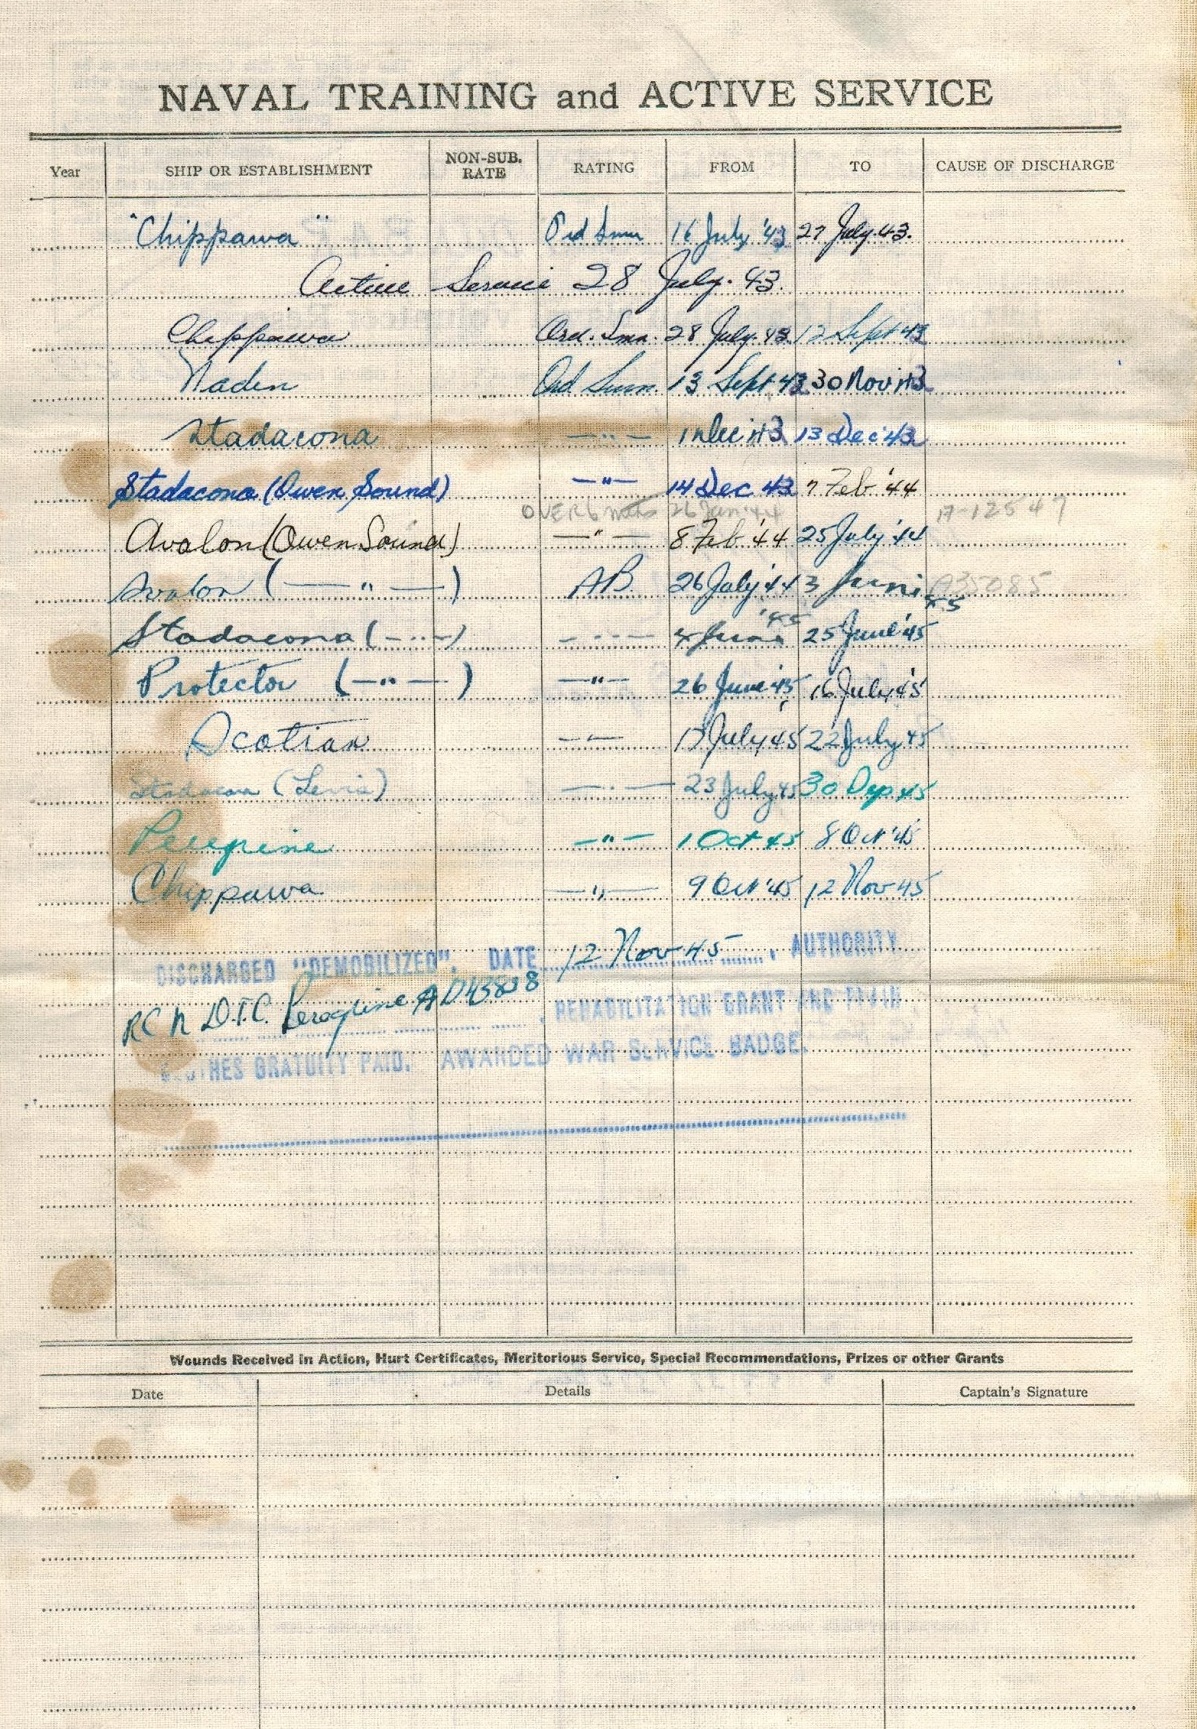 NAVAL TRAINING and ACTIVE SERVICE
Year SHIP OR ESTABLISHMENT NON-SUB. RATE RATING FROM TO CAUSE OF DISCHARGE
"Chippawa" Ord Smn 16 July '43 27 July.43.
Active Service 28 July. 43.
Chippawa Ord. Smn. 28 July.43 12 Sept 43
Naden Ord Smn. 13 Sept 43 30 Nov 43
Stadacona —··— 1 Dec 43 13 Dec '43
Stadacona (Owen Sound) —"— 14 Dec 43 7 Feb '44
OVER 6 mths 26 Jan 44 A-12547
Avalon (Owen Sound) —"— 8 Feb '44 25 July '44
Avalon (— " —) AB. 26 July '44 3 June 45 A35085
Stadacona (—··—) —··— 4 June '45 25 June '45
Protector (—"—) —"— 26 June '45 16 July '45
Scotian —·— 17 July 45 22 July 45
Stadacona (Levis) —·— 23 July 45 30 Sep 45
Peregrine —"— 1 Oct 45 8 Oct '45
Chippawa —"— 9 Oct '45 12 Nov 45
DISCHARGED "DEMOBILIZED". DATE 12 Nov 45. AUTHORITY
RCN D.T.C. Peregrine AD43838. REHABILITATION GRANT AND
CLOTHES GRATUITY PAID. AWARDED WAR SERVICE BADGE.
Wounds Received in Action, Hurt Certificates, Meritorious Service, Special Recommendations, Prizes or other Grants
Date Details Captain's Signature